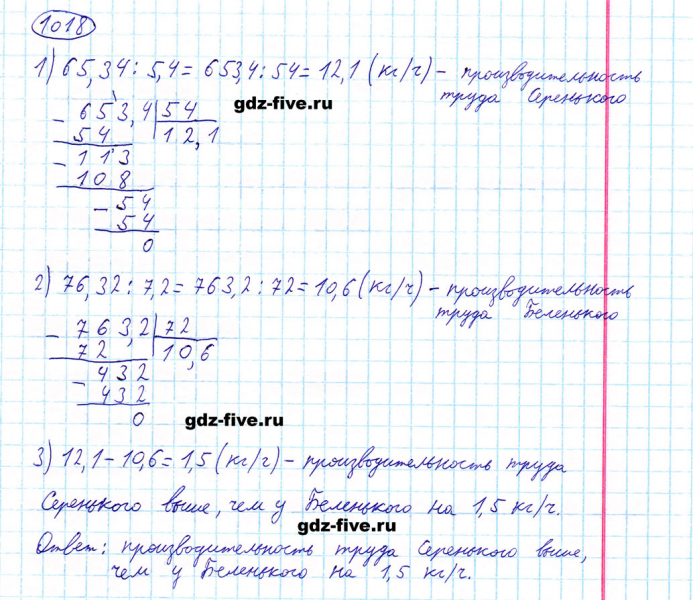 1018
1) 65,34 : 5,4 = 653,4 : 54 = 12,1 (кг/ч) – производительность
труда Серенького
gdz-five.ru
– 653,4 | 54
54 | 12,1
– 113
108
– 54
54
0
2) 76,32 : 7,2 = 763,2 : 72 = 10,6 (кг/ч) – производительность
труда Беленького
– 763,2 | 72
72 | 10,6
– 432
432
0
gdz-five.ru
3) 12,1 – 10,6 = 1,5 (кг/ч) – производительность труда
Серенького выше, чем у Беленького на 1,5 кг/ч.
gdz-five.ru
Ответ: производительность труда Серенького выше,
чем у Беленького на 1,5 кг/ч.